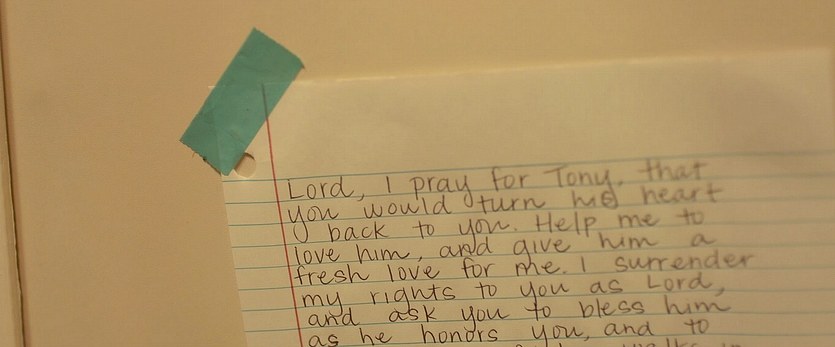 Lord, I pray for Tony, that
you would turn his heart
back to you. Help me to
love him, and give him a
fresh love for me. I surrender
my rights to you as Lord,
and ask you to bless him
as he honors you, and to
walks in